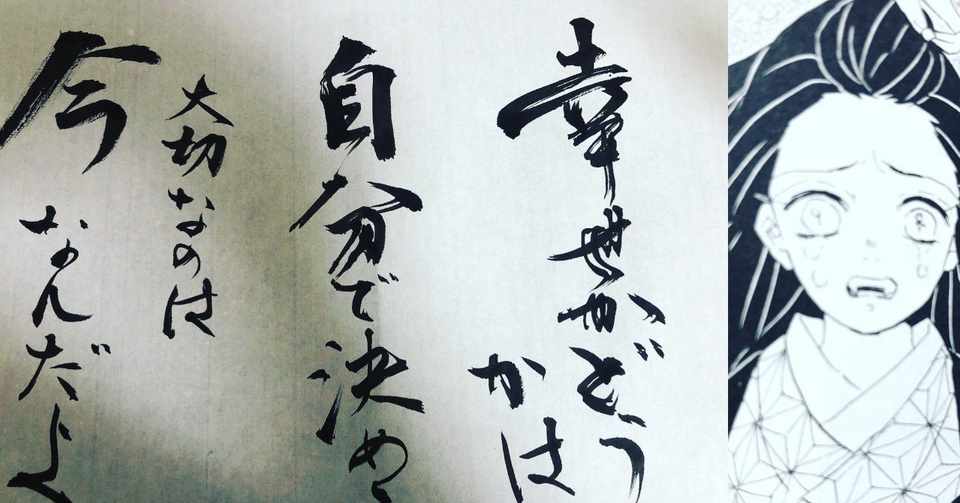 幸せかどう
かは
自分で決める
大切なのは
今なんだよ